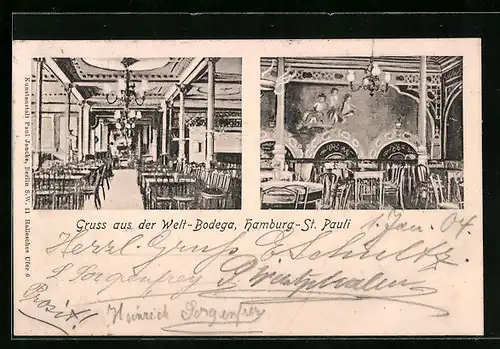 Gruss aus der Welt-Bodega, Hamburg-St. Pauli
1. Jan. 04.
Herzl. Gruß E. Schultz.
S. Sorgenfrey P. Westphalen
Prosit!
Heinrich Sorgenfrey
Kunstanstalt Paul Janske, Berlin S.W. 11 Hallesches Ufer 6